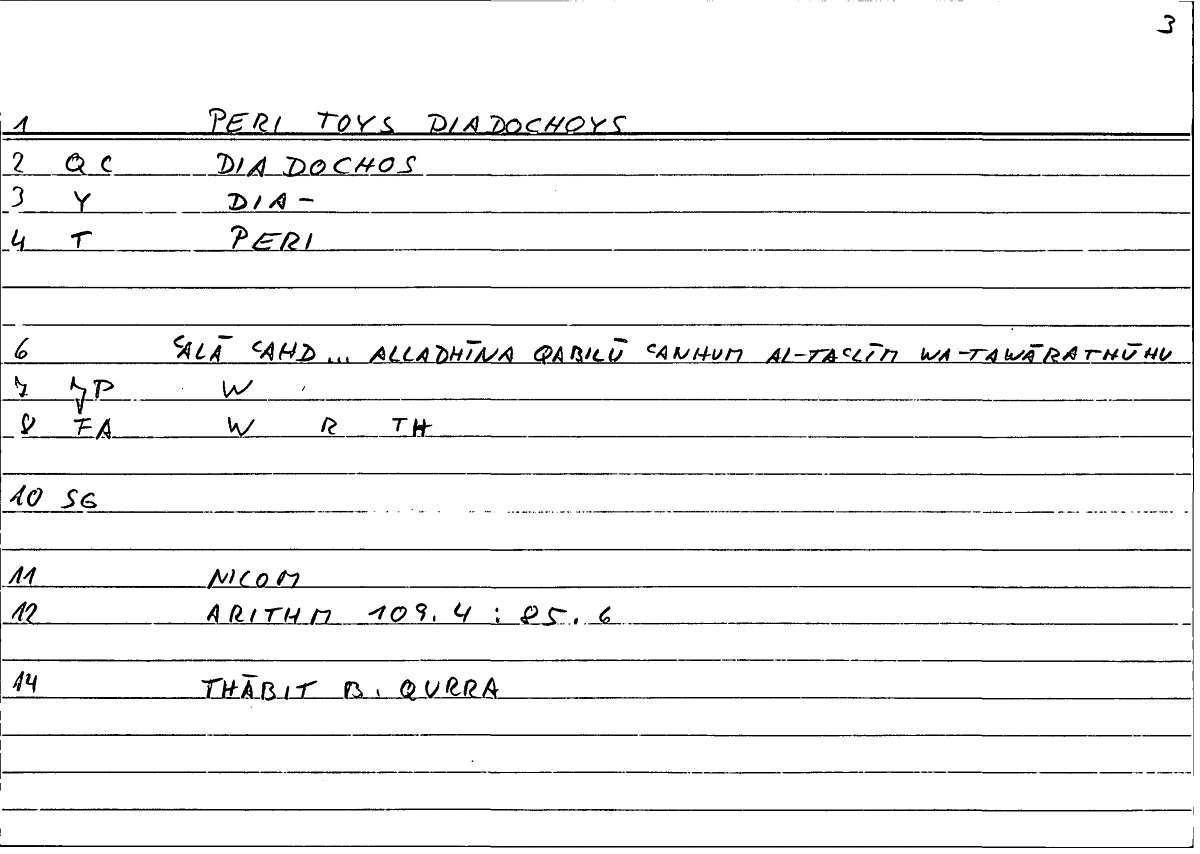 3
1 PERI TOYS DIADOCHOYS
2 QC DIADOCHOS
3 Y DIA-
4 T PERI
6 ʿALĀ ʿAHD... ALLADHĪNA QABILŪ ʿANHUM AL-TAʿLĪM WA-TAWĀRATHŪHU
7 P W
8 FA W R TH
10 SG
11 NICOM
12 ARITHM 109.4 : 85.6
14 THĀBIT B. QURRA